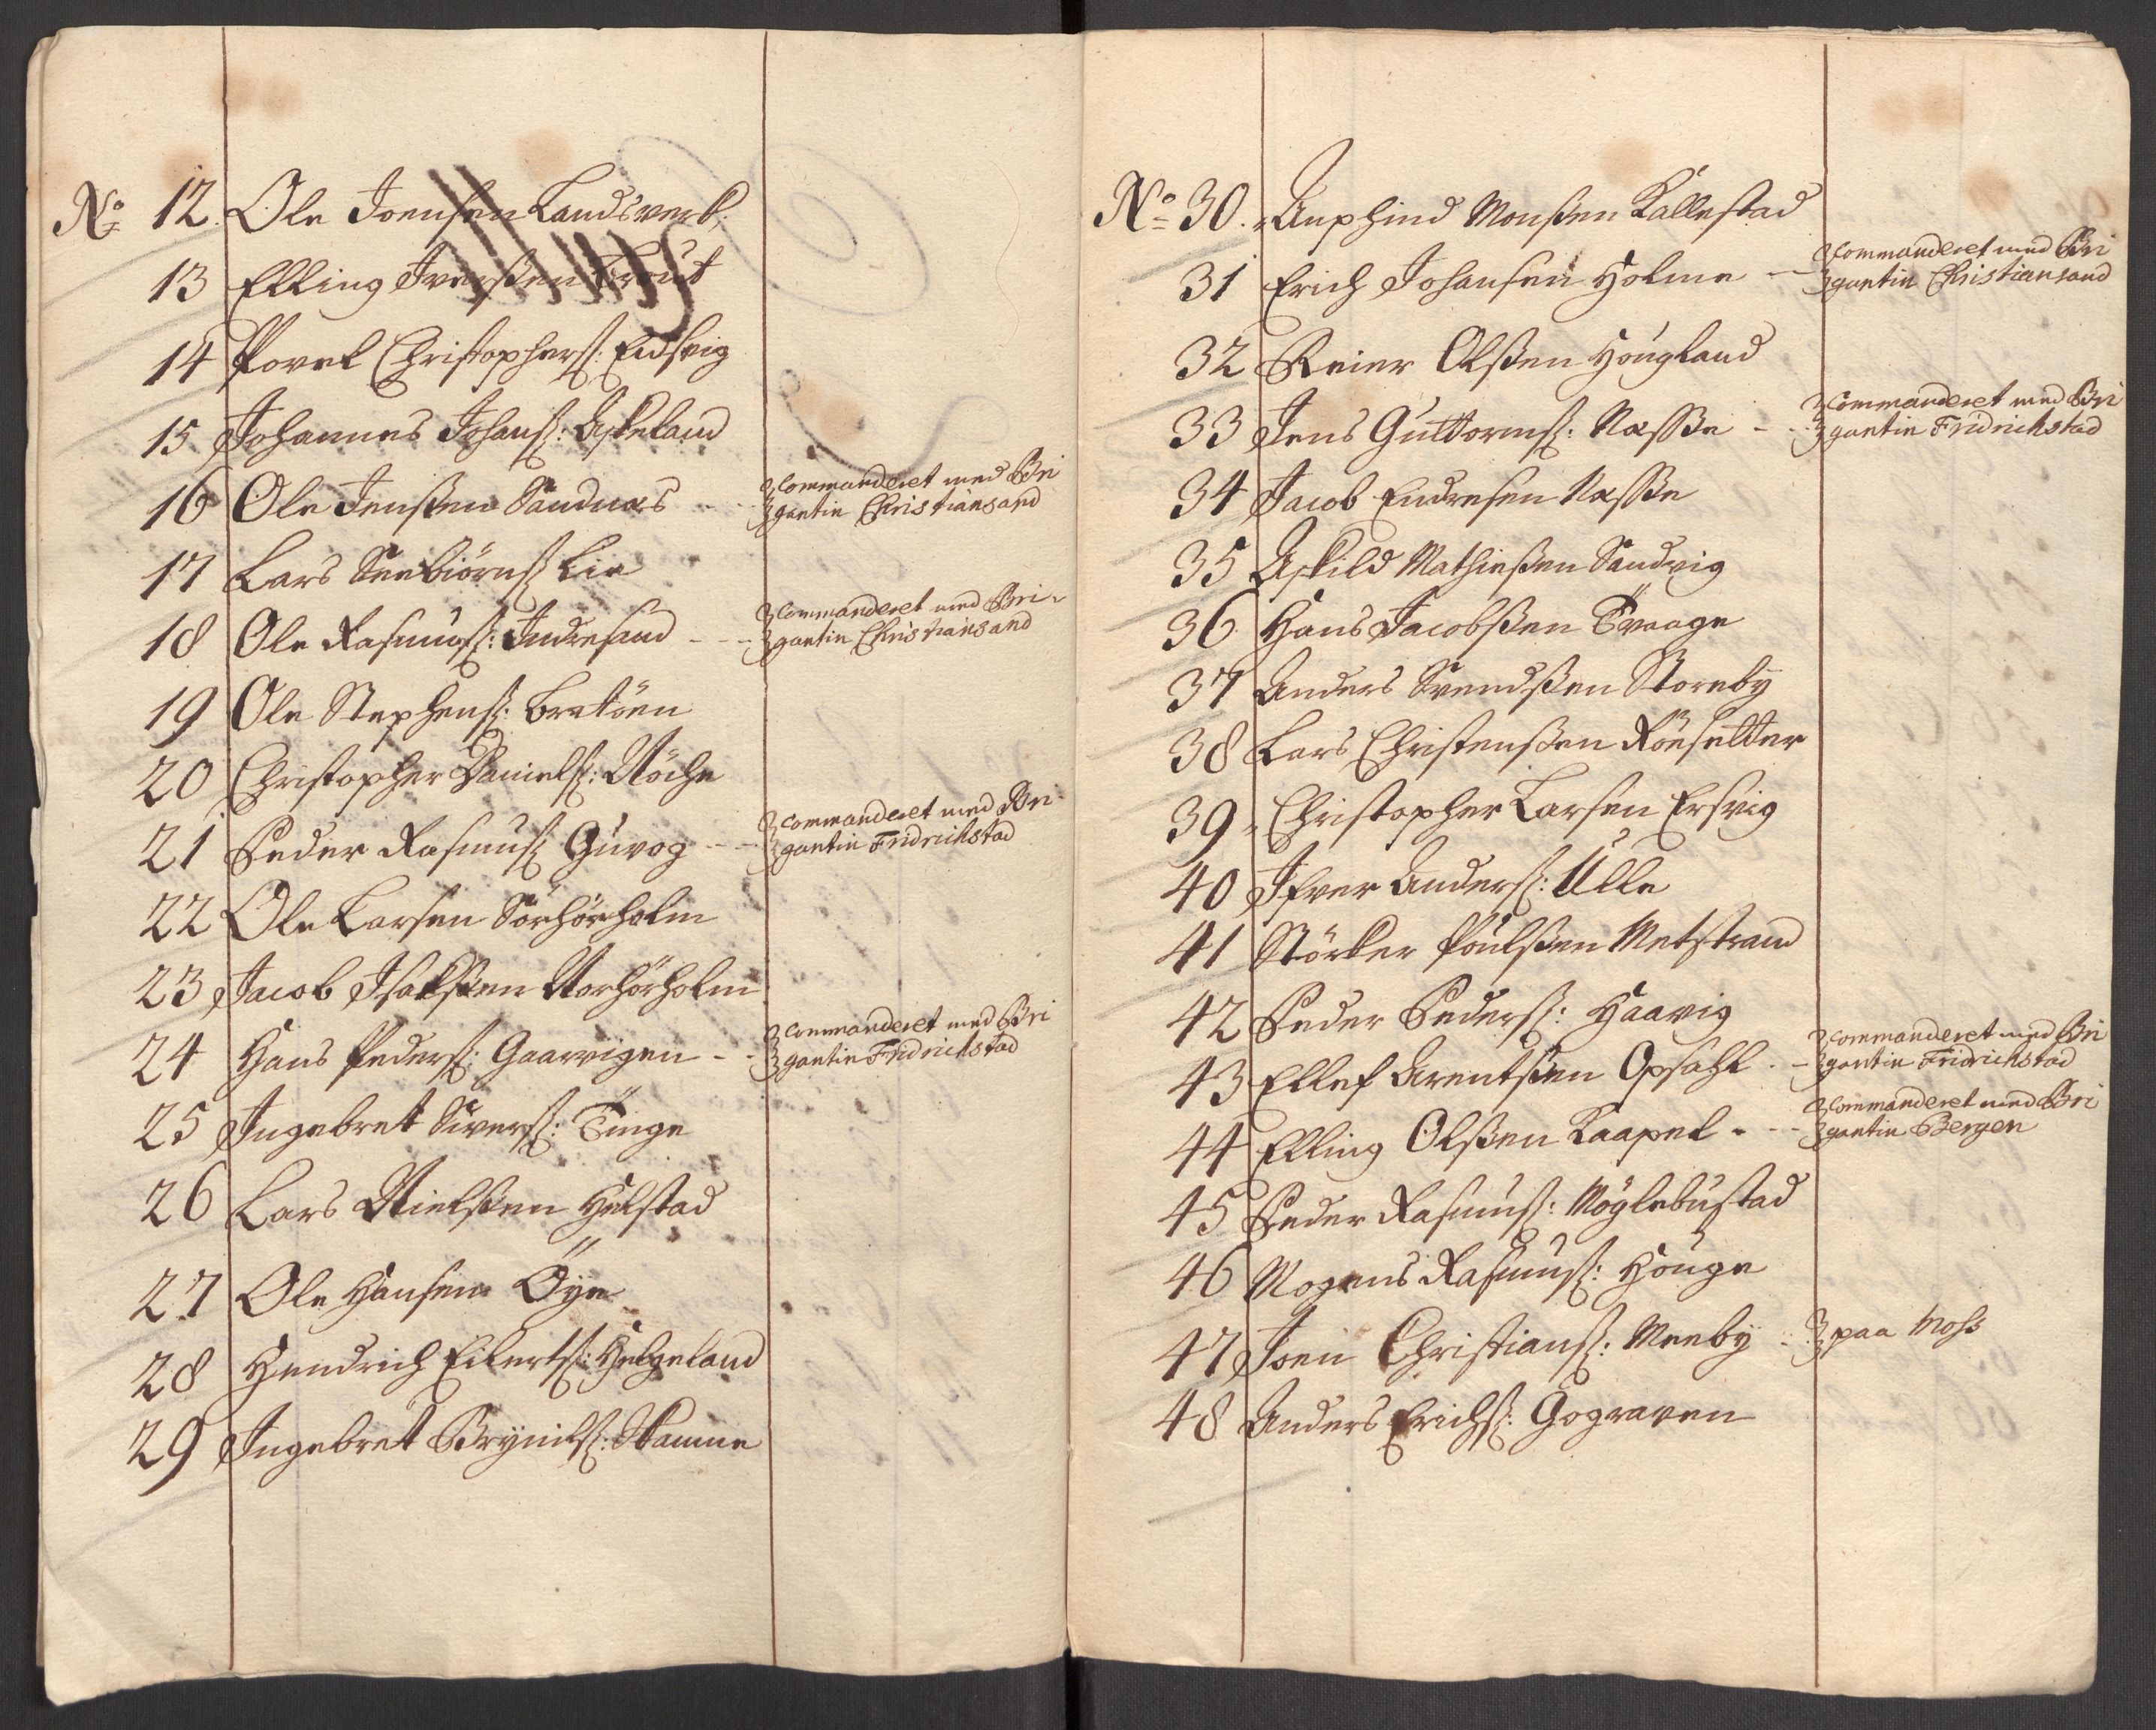 No 12. Ole Joensen Landsverk.
13 Elling Iverssen
14 Povel Christophers: Eidsvig
15 Johannes Johans: Askeland
16 Ole Jenssen Sandnæs - - Commanderet med Bri
gantin Christiansand
17 Lars Seebiörns: Lie
18 Ole Rasmus: Indresand - - - Commanderet med Bri-
gantin Christiansand
19 Ole Stephens: Bratöen
20 Christopher Daniels: Nöche
21 Peder Rasmus: Gúvog - - - Commanderet med Bri
gantin Fridrichstad
22 Ole Larsen Sörhörholm
23 Jacob Isakssen Norhörholm
24 Hans Peders: Gaarvigen - - Commanderet med Bri
gantin Fridrichstad
25 Ingebret Sivers: Tinge
26 Lars Nielssen Helstad
27 Ole Hansen Öye
28 Hendrich Eilerts: Helgeland
29 Ingebret Brynils: Hamne
No 30. Anphind Monssen Kallestad
31 Erich Johansen Holme - - Commanderet med Bri
gantin Christiansand
32 Reier Olssen Hougland
33 Jens Guttorms: Næsse - - Commanderet med Bri
gantin Fridrichstad
34 Jacob Endresen Næsse
35 Askild Mathiessen Sandvig
36 Hans Jacobssen Tvaage
37 Anders Svendssen Storeby
38 Lars Christenssen Röeseltter
39 Christopher Larsen Ersvig
40 Ifver Anders: Ulle
41 Störker Poulssen Metstrand
42 Peder Peders: Haavig
43 Ellef Arentsen Opsahl - - Commanderet med Bri
gantin Fridrichstad
44 Elling Olssen Kaapel - - - Commanderet med Bri
gantin Bergen
45 Peder Rasmus: Möglebustad
46 Mogens Rasmus: Houge
47 Joen Christians: Meeby - - paa Moss
48 Anders Erichs: Gograven